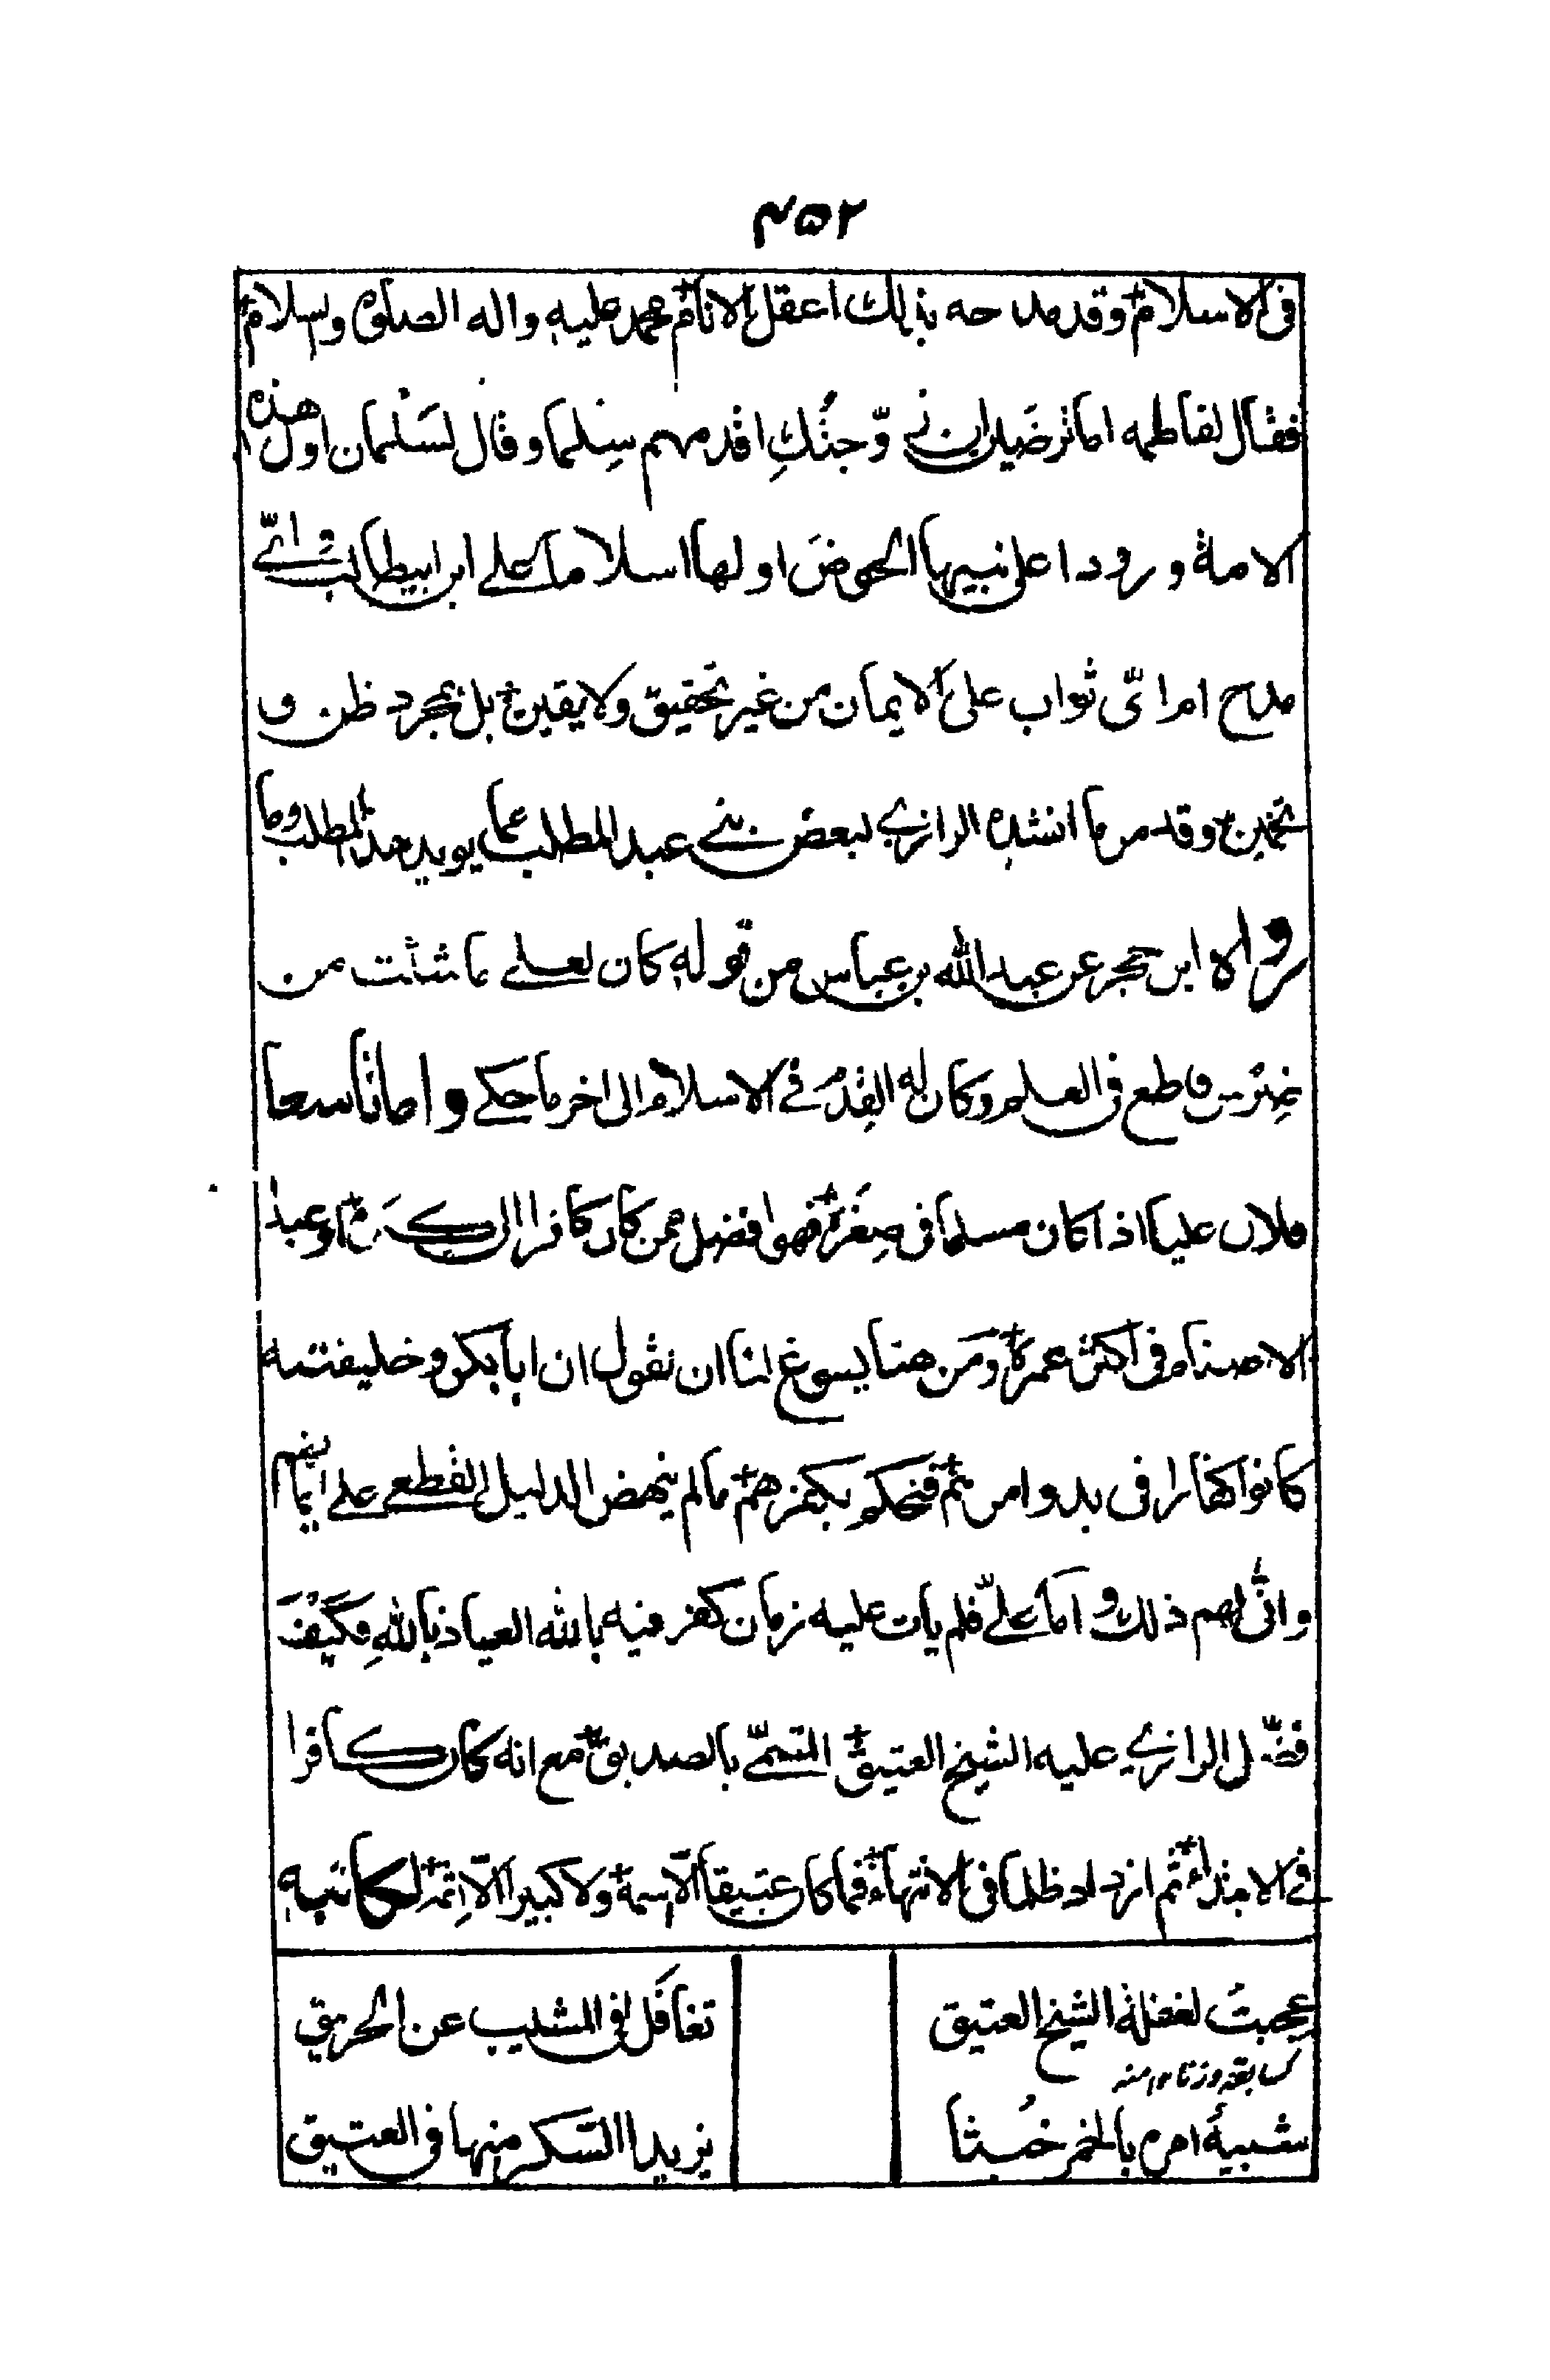 ۴۵۲
فى الاسلام وقد مدحه بذلك اعقل الانام محمد عليه واله الصلوة والسلام
فقال لفاطمه اما ترضين انى زوّجتُكِ اقدمهم سِلما وقال لسَلْمان اول هذه
الامة ورودا على نبيها الحوضَ اولها اسلاما على ابن ابيطالب وائّ
مدح ام ائّ ثواب على الايمان من غير تحقيق ولا يقين بل بمجرد ظن و
تخمين وقد مر ما انشده الرازي لبعض بنى عبد المطلب مما يويد هذا المطلب وما
رواه ابن حجر عن عبد الله بن عباس من قوله كان لعلى ما شئت من
ضِرْس قاطع فى العلم وكان له القِدَمُ فى الاسلام الى اخر ما حكى واما تاسعا
فلان عليا اذا كان مسلما فى صِغَرِه فهو افضل ممن كان كافرا الى كبره او عبد
الاصنام فى اكثر عمره ومن هنا يسوغ لنا ان نقول ان ابا بكر وخليفته
كانوا كفارا فى بدو امرهم فنحكم بكفرهم ما لم ينهض الدليل القطعى على ايمانهم
وانّى لهم ذلك واما علىّ فلم يات عليه زمان كفر فيه بالله العياذ بالله فكيف
فضّل الرازي عليه الشيخ العتيق المتسمّى بالصديق مع انه كان كافرا
فى الابتداء ثم ازداد ظلما فى الانتهاء فما كان عتيقا الّا اسمه ولا كبيرا الّا اثمه لكاتبه
عجبت لغفلة الشيخ العتيق
تغافَل فى المشيب عن الحريق
شبيهٌ امره بالخمر خُبثا
يزيد السكر منها فى العتيق